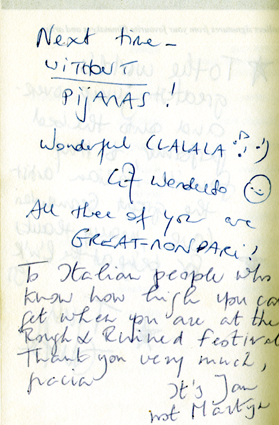 Next time -
WITHOUT
PIJAMAS!
Wonderful CLALALA :)
All three of you are
GREAT-NONPARI!
To Italian people who
know how high you can
get when you are at the
Rough & Ruined Festival
Thank you very much,
It's Jan
not Martyn